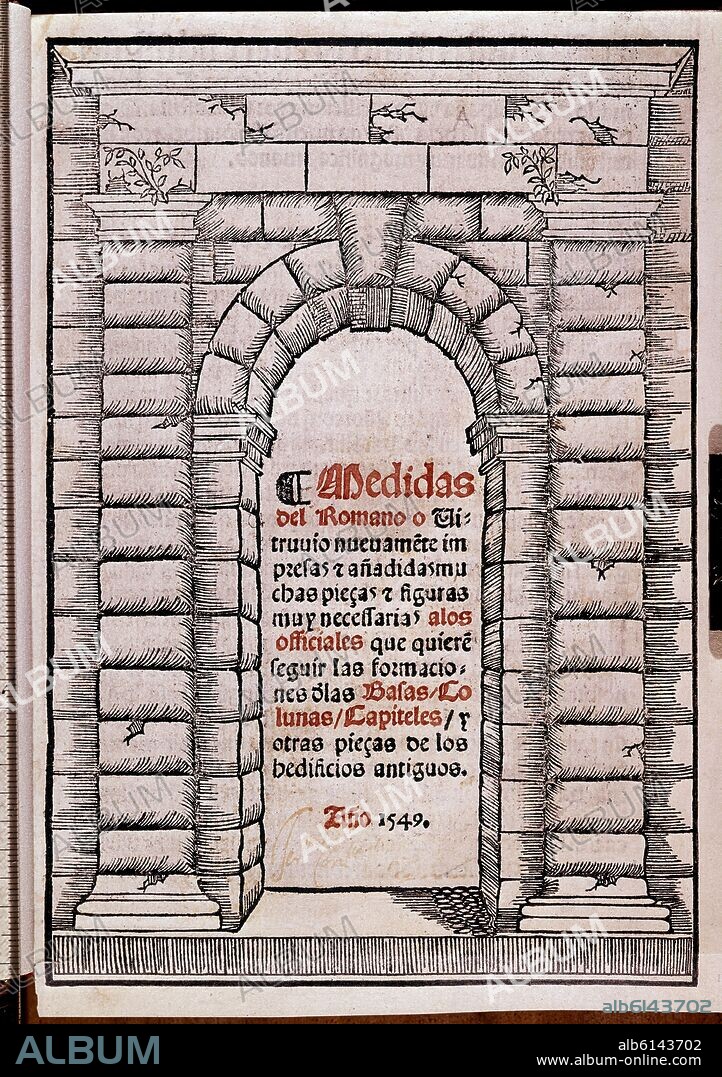 ¶ Medidas
del Romano o Ui-
truuio nueuamẽte im
presas ⁊ añadidas mu
chas pieças ⁊ figuras
muy necessarias alos
officiales que quierẽ
seguir las formacio-
nes d̃las Basas/Co
lunas/Capiteles/y
otras pieças de los
hedificios antiguos.
Año 1549.
alb6143702
ALBUM
alb6143702
www.album-online.com